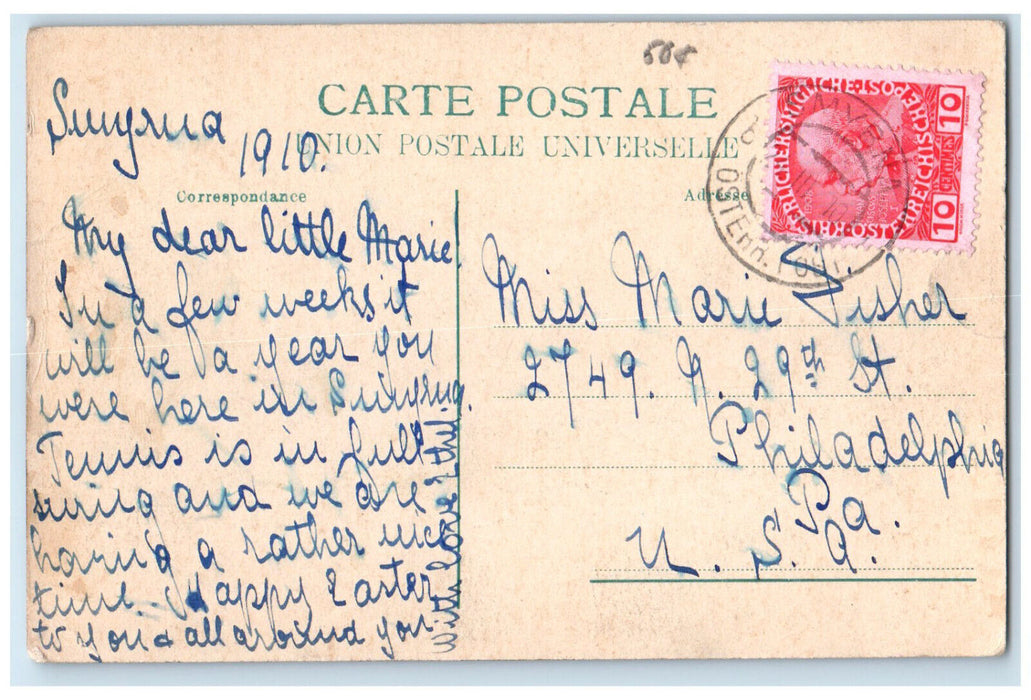 508
CARTE POSTALE
UNION POSTALE UNIVERSELLE
Correspondance
Adresse
Smyrna
1910.
My dear little Marie.
In a few weeks it
will be a year you
were here in Smyrna.
Tennis is in full
swing and we are
having a rather nice
time. Happy Easter
to you & all around you
With love
Miss Marie Fisher
2749. N. 29th St.
Philadelphia
Pa.
U. S. A.
KAISERLICHE KÖNIGLICHE ÖSTERREICHISCHE POST
10
CENTIMES
10
SMYRNA
ÖSTERR. POST